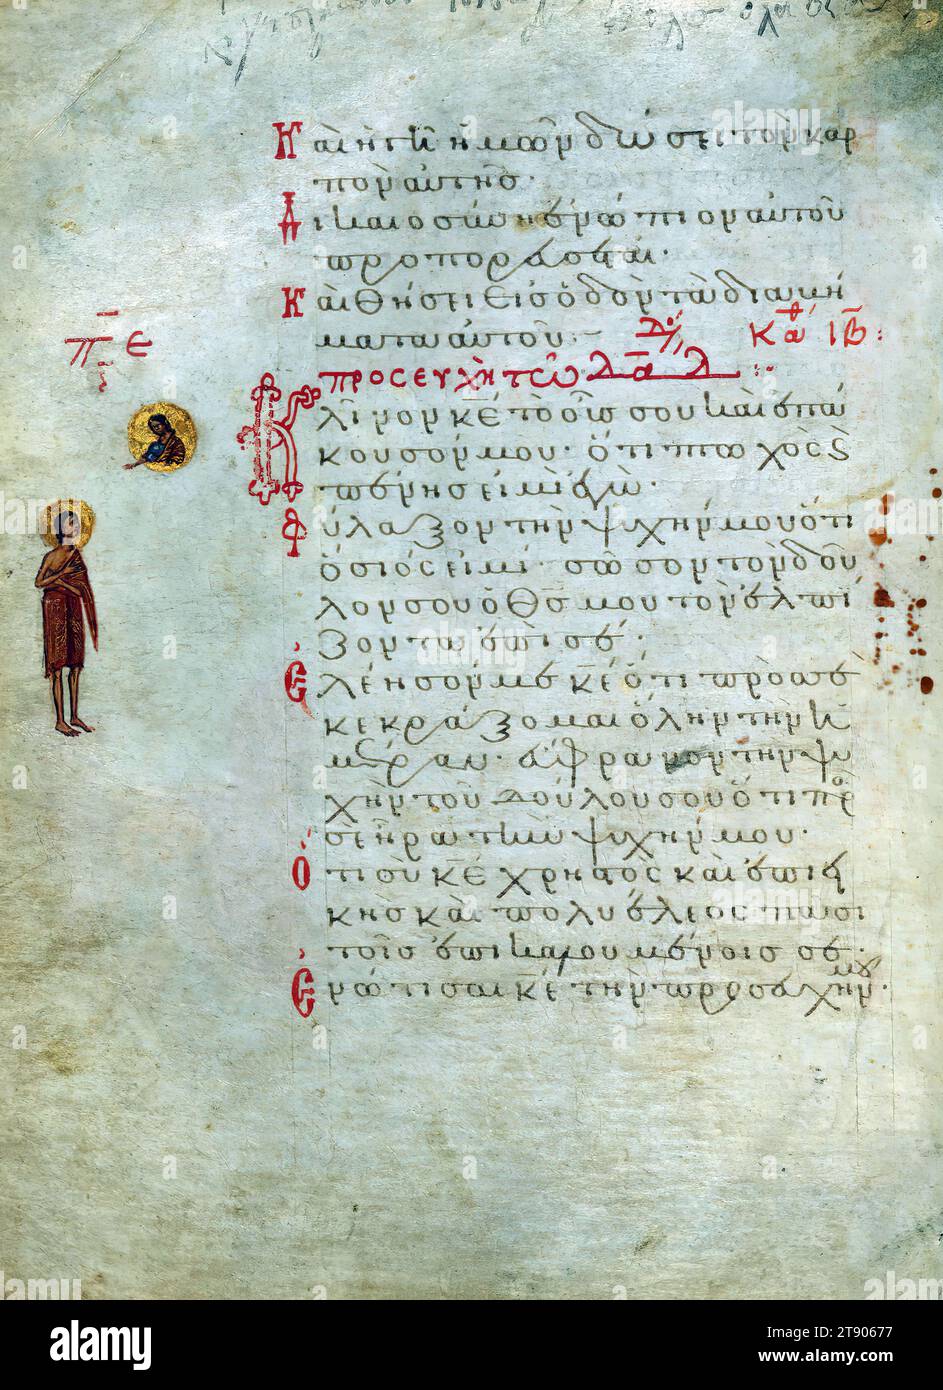 Καὶ ἡ γῆ ἡμῶν δώσει τὸν καρ
πὸν αὐτῆς·
Δικαιοσύνη ἐνώπιον αὐτοῦ
προπορεύσεται·
Καὶ θήσει εἰς ὁδὸν τὰ δια
ματα αὐτοῦ·
ΠΕ
Κα ΙΒ:
προσευχὴ τῶ δαδ
Κλῖνον κε τὸ οὖς σου καὶ ἐπά
κουσόν μου· ὅτι πτωχὸς
πένης εἰμὶ ἐγώ·
Φύλαξον τὴν ψυχήν μου ὅτι
ὅσιός εἰμι· σῶσον τὸν δοῦ
λον σου ὁ θς μου τὸν ἐλπί
ζοντα ἐπὶ σέ·
Ἐλέησόν με κε ὅτι πρὸς σὲ
κεκράξομαι ὅλην τὴν ἡ
μέραν· εὔφρανον τὴν ψυ
χὴν τοῦ δούλου σου ὅτι πρ
σὲ ἦρα τὴν ψυχήν μου·
Ὅτι σὺ κε χρηστὸς καὶ ἐπιει
κὴς καὶ πολυέλεος πᾶσι
τοῖς ἐπικαλουμένοις σε·
Ἐνώτισαι κε τὴν προσευχήν μου·
alamy
Image ID: 2T90677
www.alamy.com